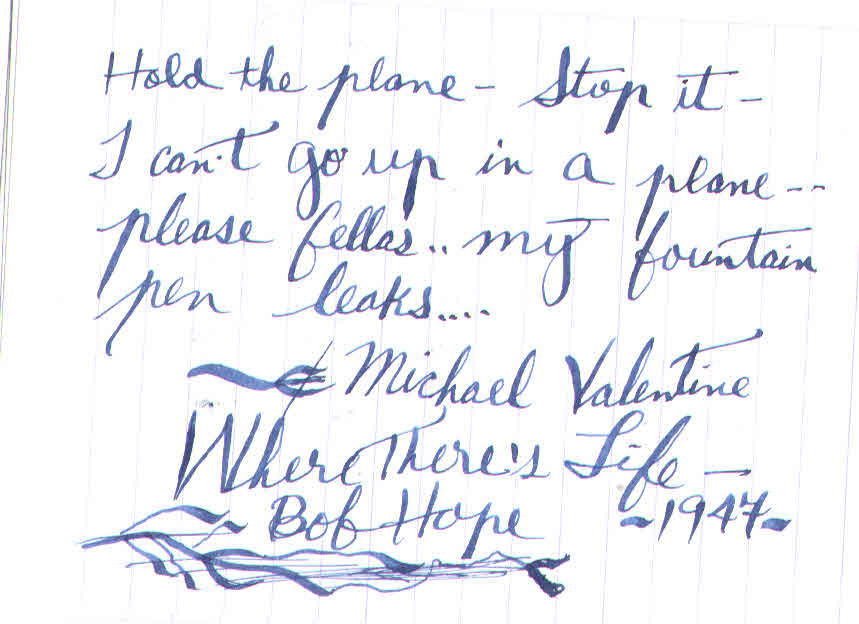 Hold the plane - Stop it -
I can't go up in a plane--
please fellas.. my fountain
pen leaks....
~ Michael Valentine
Where There's Life —
~ Bob Hope ~1947~